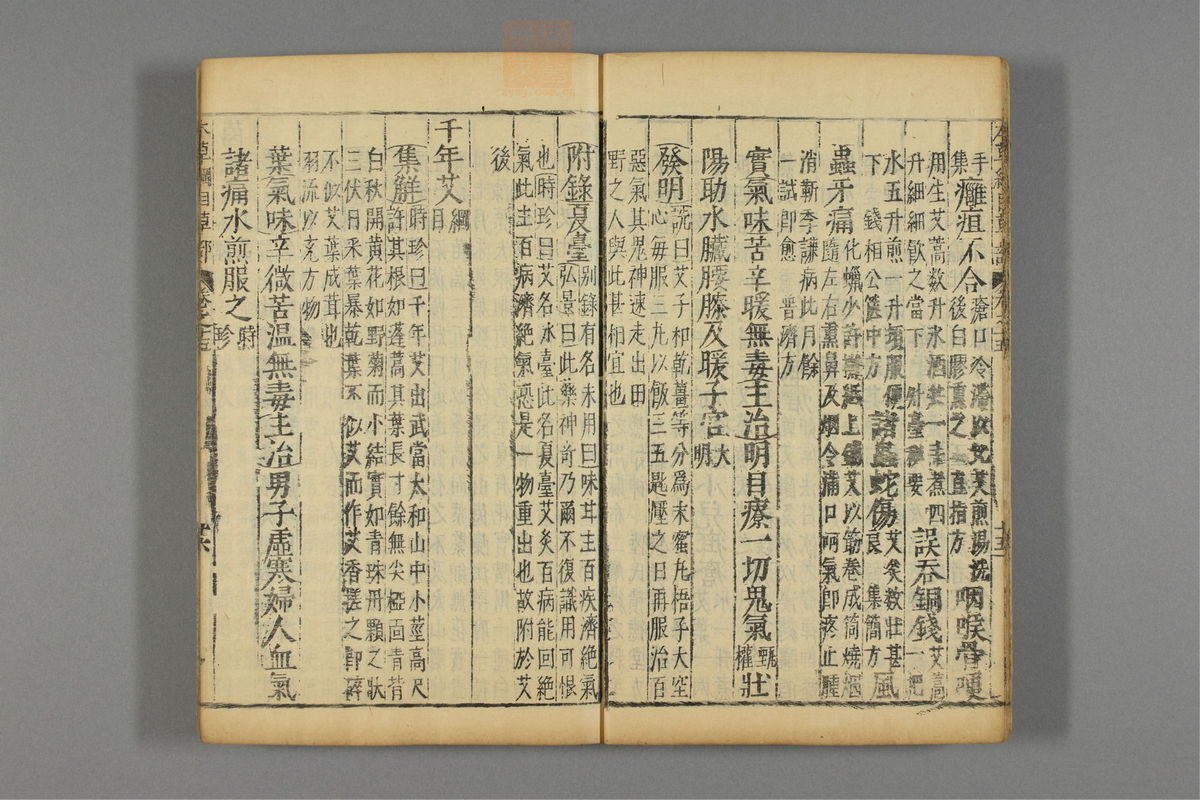 手集 癰疽不合 瘡口冷滯以艾煎湯洗後白膠熏之 直指方 咽喉骨哽
用生艾蒿數升水酒共一斗煮四升細細飲之當下 外臺秘要 誤吞銅錢 艾蒿一把
水五升煎一升頓服便下 錢相公篋中方 諸蟲蛇傷 艾灸數壯甚良 集簡方 風
蟲牙痛 化蠟少許攤紙上鋪艾以筯卷成筒燒烟隨左右熏鼻及吸烟令滿口呵氣即疼止腫
消靳季謙病此月餘一試即愈 普濟方
實 氣味苦辛暖無毒 主治 明目療一切鬼氣 甄權 壯
陽助水臟腰膝及暖子宮 大明
發明 詵曰艾子和乾薑等分爲末蜜丸梧子大空心每服三丸以飯三五匙壓之日再服治百
惡氣其鬼神速走出田野之人與此甚相宜也
附錄 夏臺 别錄有名未用曰味甘主百疾濟絶氣弘景曰此藥神奇乃爾不復識用可恨
也時珍曰艾名冰臺此名夏臺艾灸百病能回絶氣此主百病濟絶氣恐是一物重出也故附於艾
後
千年艾 綱目
集解 時珍曰千年艾出武當太和山中小莖高尺許其根如蓬蒿其葉長寸餘無尖椏面青背
白秋開黄花如野菊而小結實如青珠丹顆之狀三伏日采葉暴乾葉不似艾而作艾香搓之即碎
不似艾葉成茸也羽流以充方物
葉 氣味辛微苦溫無毒 主治 男子虛寒婦人血氣
諸痛水煎服之 時珍